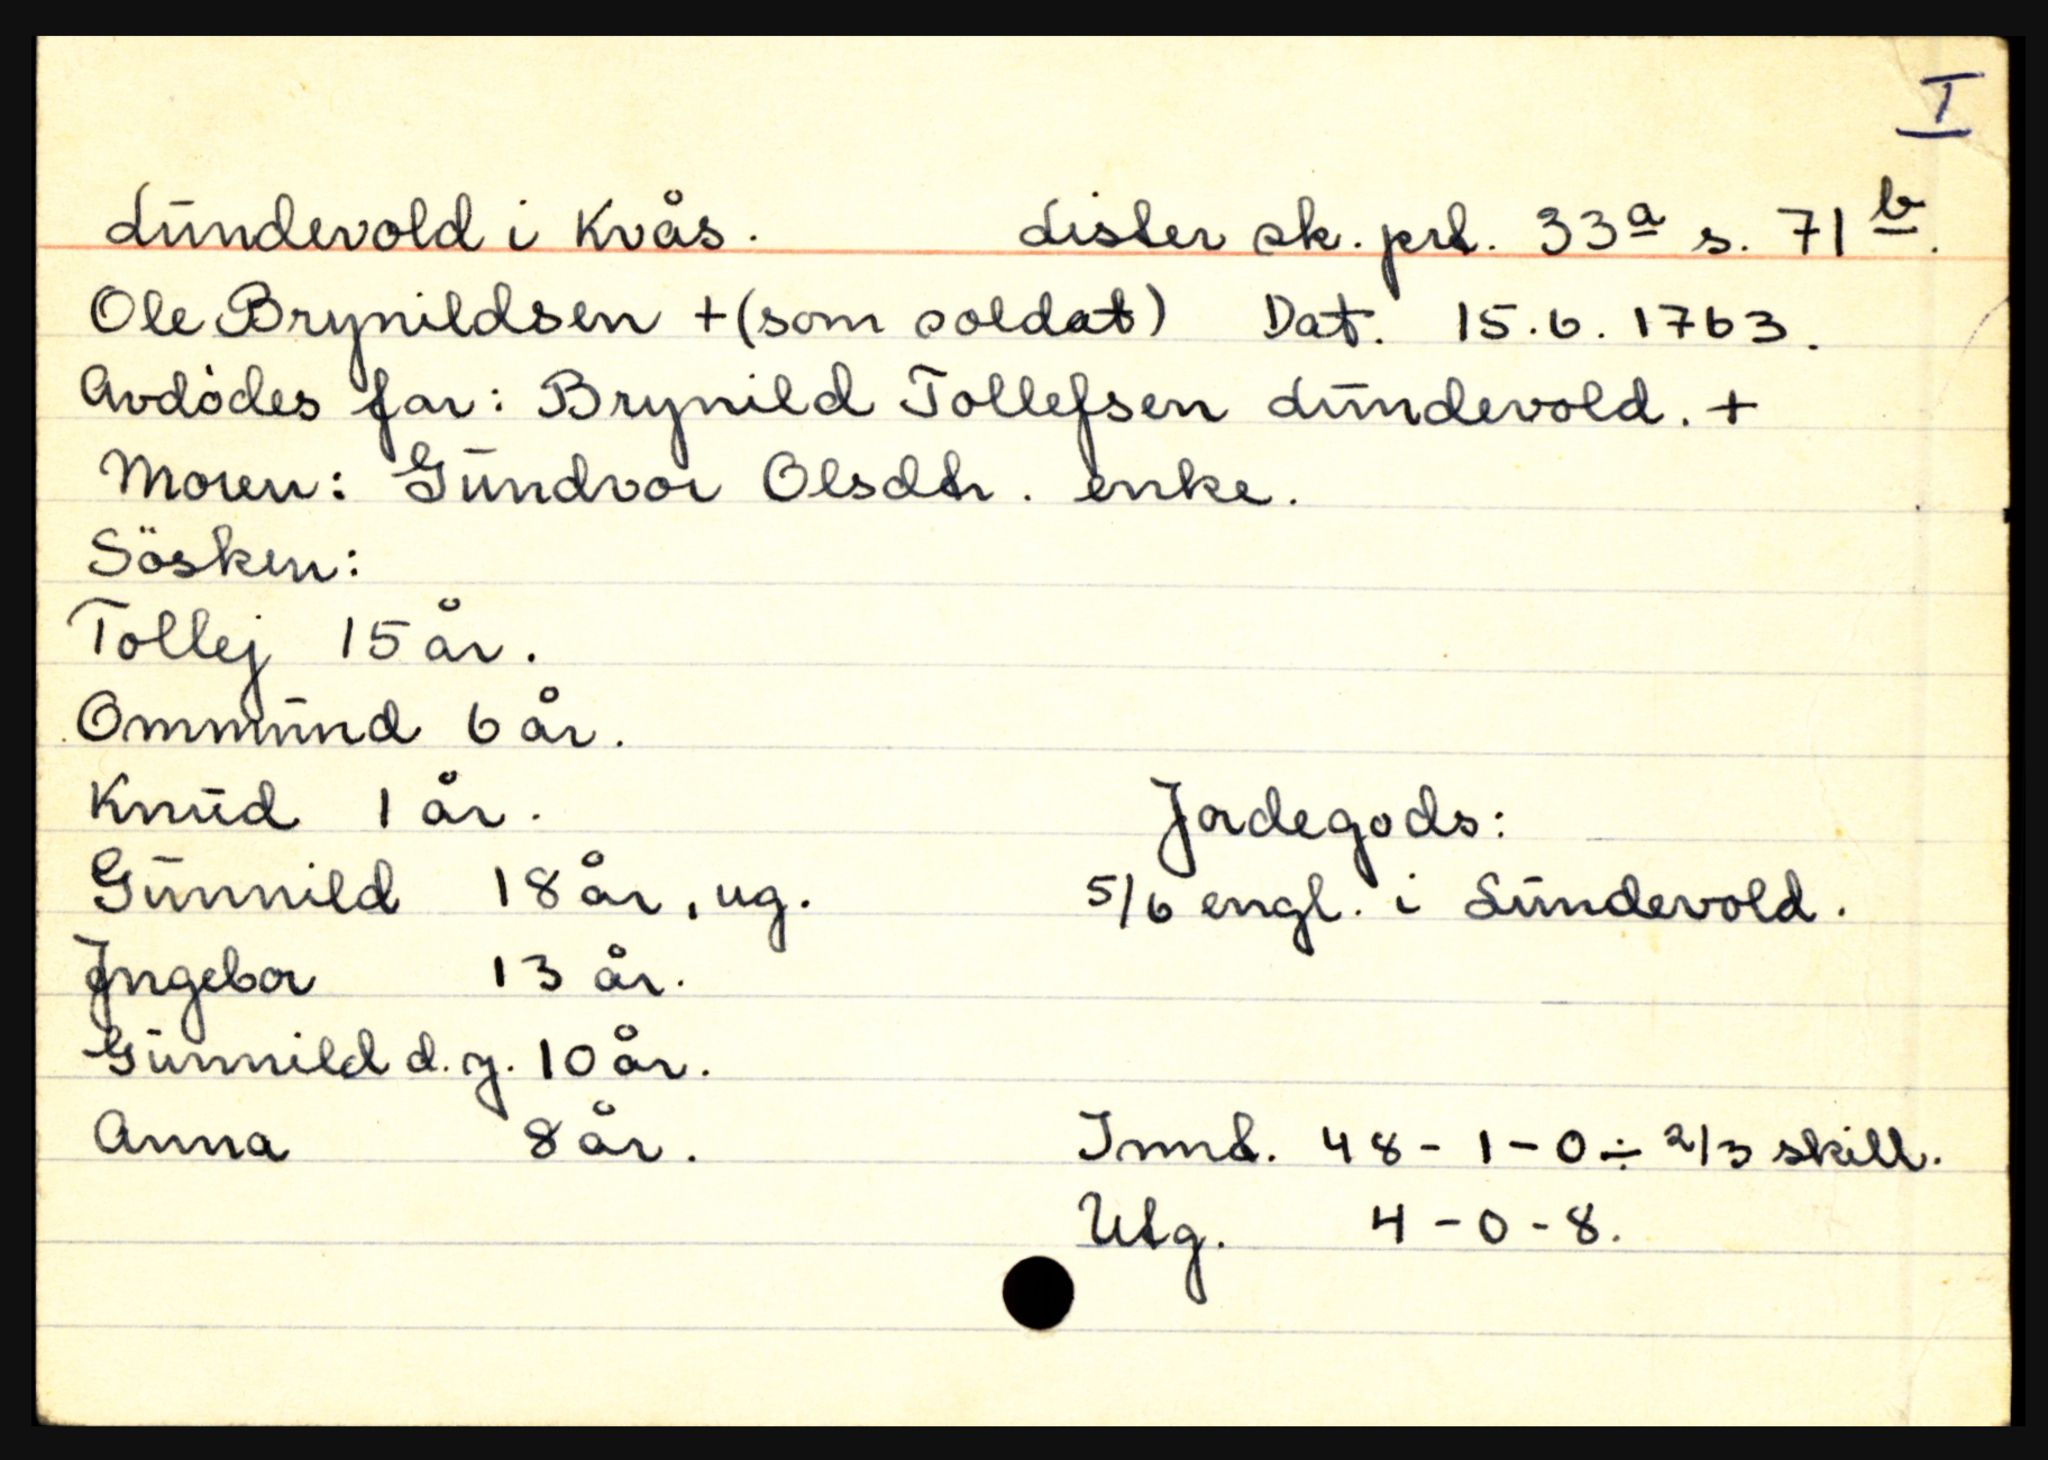 I
Lundevold i Kvås. Lister sk. prt. 33a s. 71b.
Ole Brynildsen + (som soldat) Dat. 15.6.1763.
Avdödes far: Brynild Tollefsen Lundevold. +
Moren: Gundvor Olsdtr. enke.
Sösken:
Tollej 15 år.
Ommund 6 år.
Knud 1 år.
Jordegods:
Gunnild 18 år, ug.
5/6 engl. i Lundevold.
Ingebor 13 år.
Gunnild d.y. 10 år.
Anna 8 år.
Innt. 48 - 1 - 0 ÷ 2/3 skill.
Utg. 4 - 0 - 8.